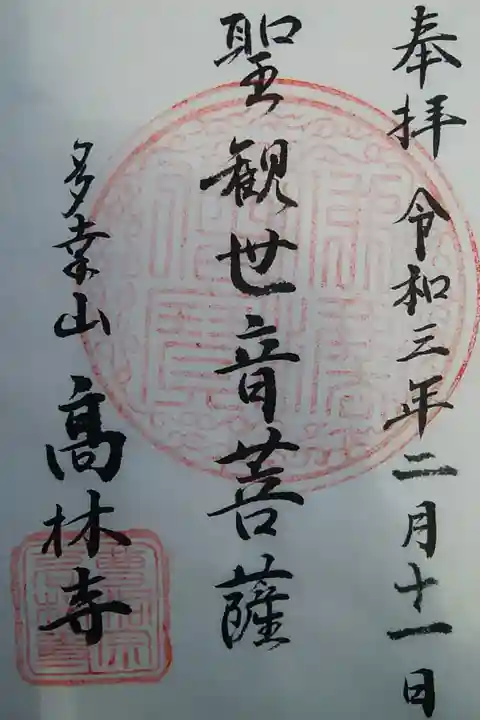 奉拝 令和三年二月十一日
聖観世音菩薩
多幸山 高林寺